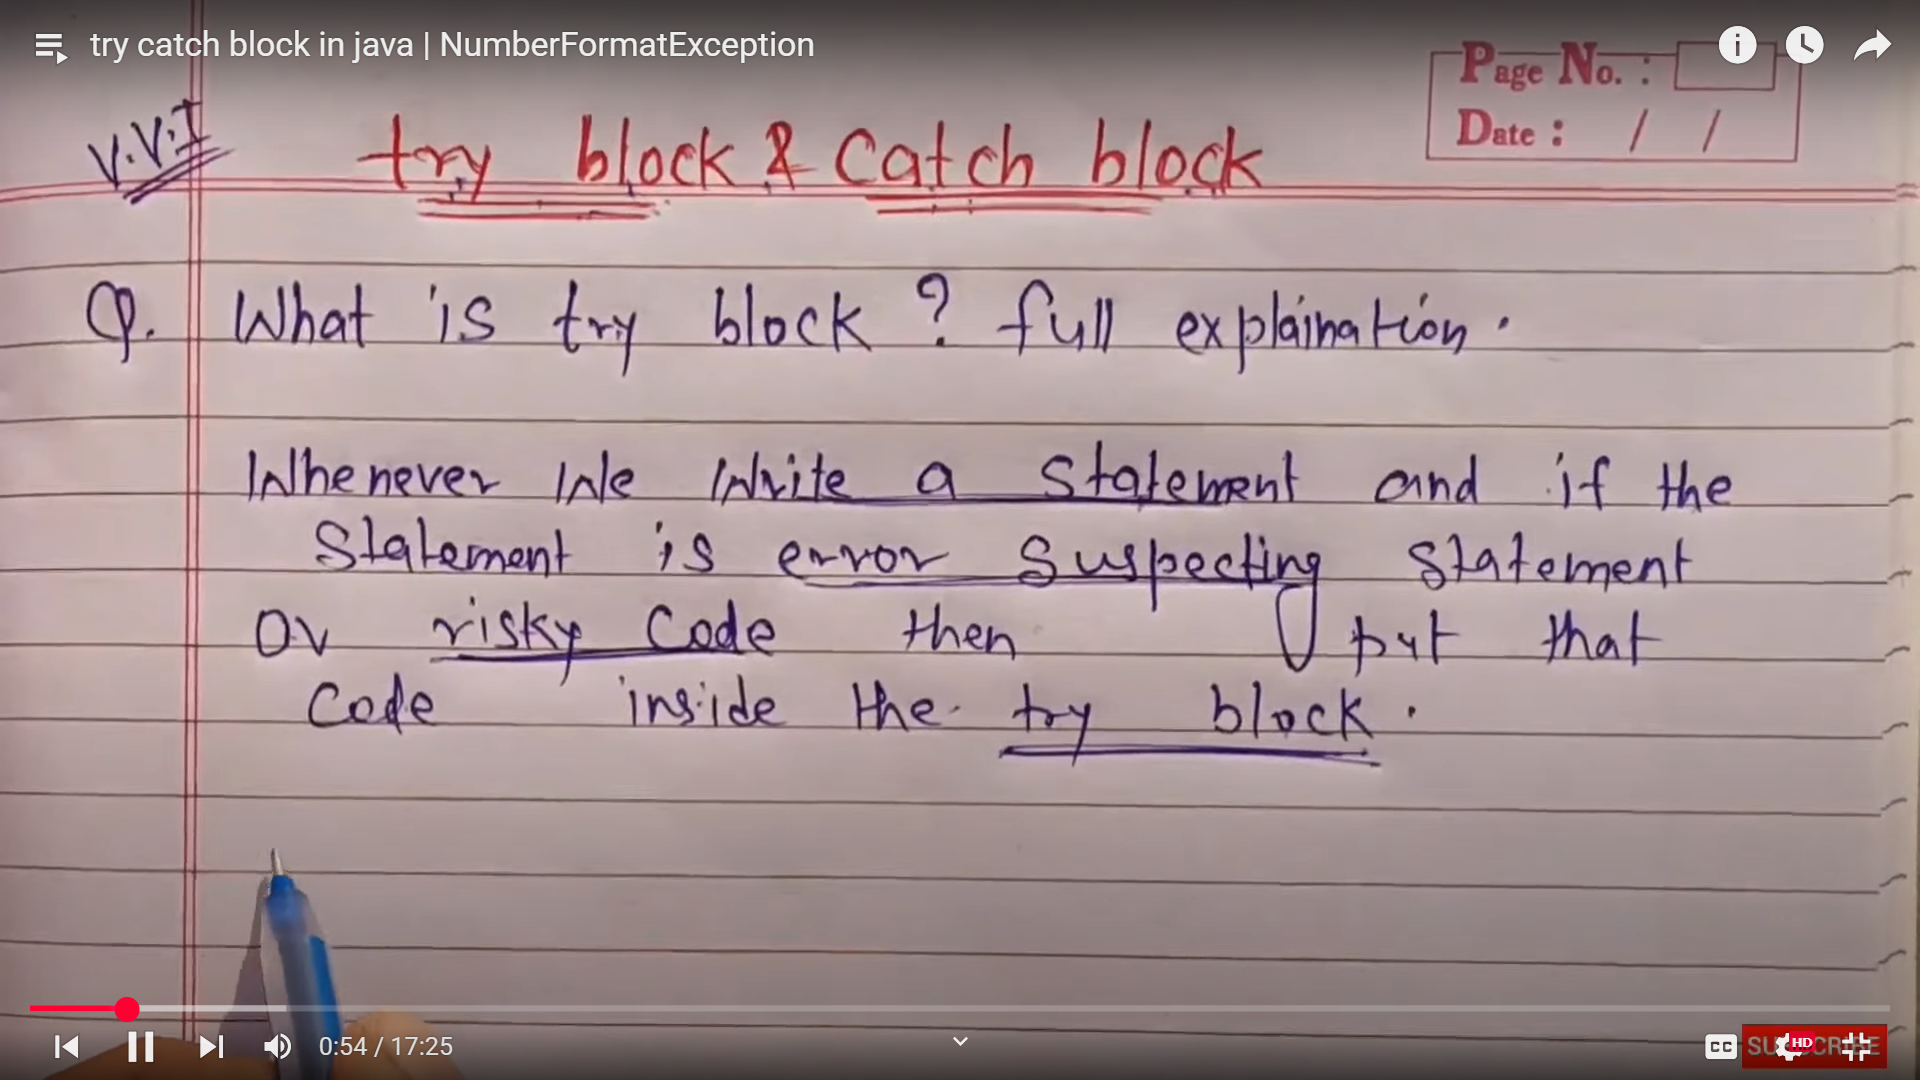 try catch block in java | NumberFormatException
Page No. :
Date : / /
V.V.I
try block & Catch block
Q. What is try block ? full explaination.
Whenever We Write a Statement and if the
Statement is error Suspecting Statement
Or risky Code then put that
Code inside the try block.
0:54 / 17:25
CC
HD
SUBSCRIBE